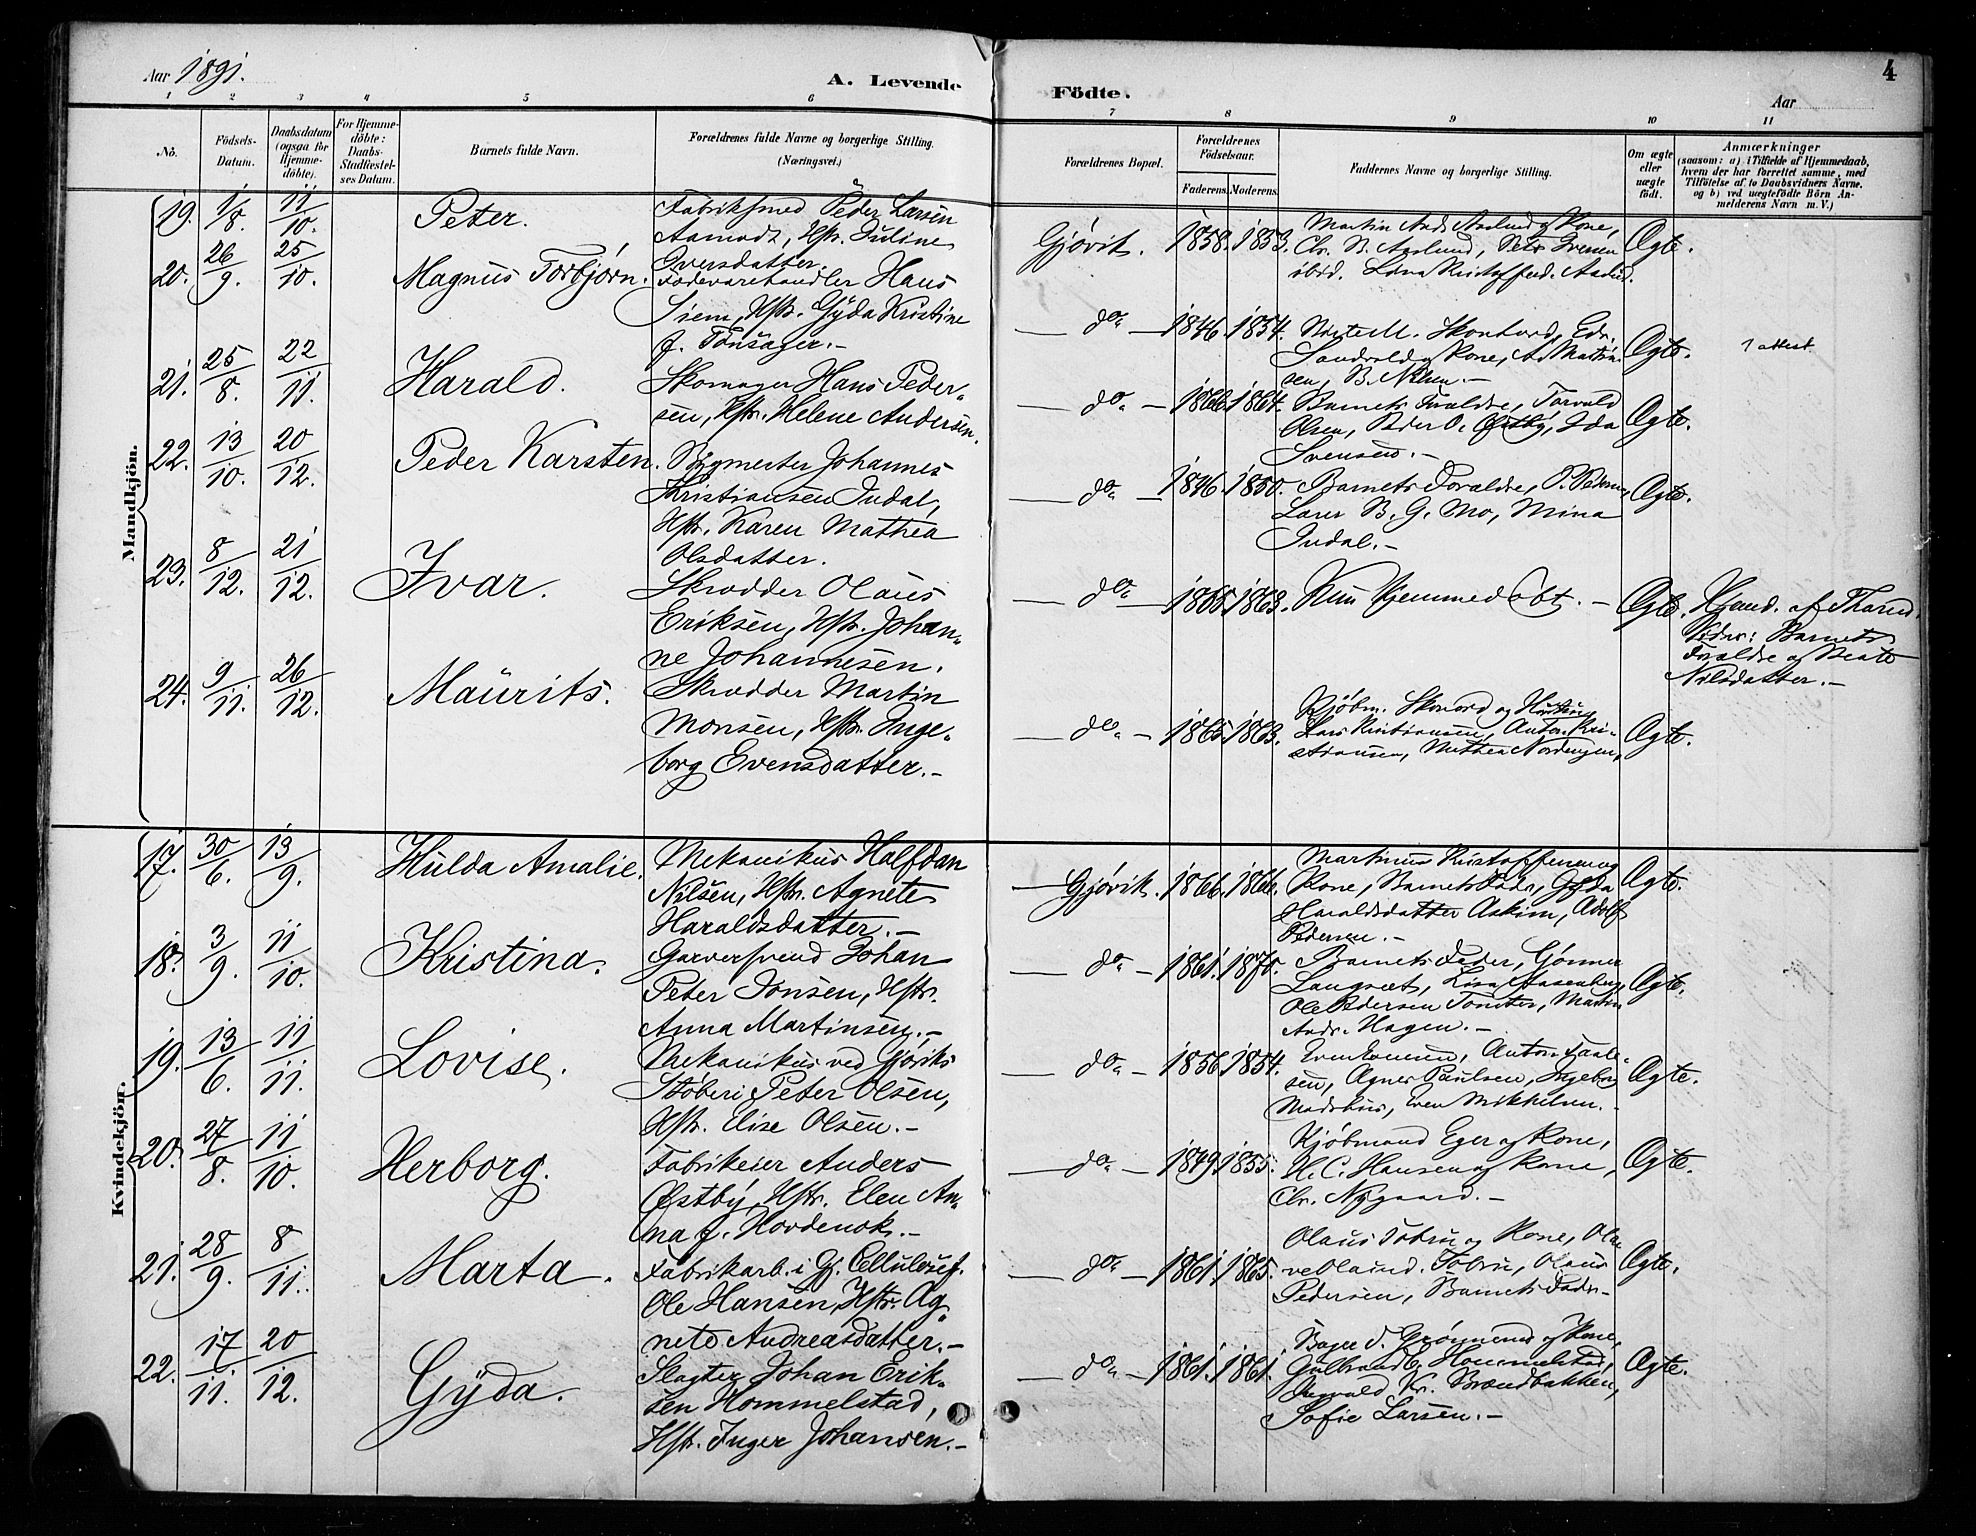 Aar 1891.
A. Levende
Födte.
4
Aar
1 2 3 4 5 6 7 8 9 10 11
No.
Födsels-
Datum.
Daabsdatum
(ogsaa for
Hjemme-
döbte).
For Hjemme-
döbte:
Daabs-
Stadfæstel-
ses Datum.
Barnets fulde Navn.
Forældrenes fulde Navne og borgerlige Stilling.
(Næringsvei.)
Forældrenes Bopæl.
Forældrenes
Födselsaar.
Faderens. Moderens.
Faddernes Navne og borgerlige Stilling.
Om ægte
eller
uægte
födt.
Anmærkninger
(saasom: a) i Tilfælde af Hjemmedaab,
hvem der har forrettet samme, med
Tilföielse af to Daabsvidners Navne.
og b) ved uægtefödte Börn An-
melderens Navn m. V.)
Mandkjön.
19. 1/8. 11/10. Peter.
Fabriksmed Peder Larsen
Aamodt, Hstr. Juline
Iversdatter.
Gjøvik. 1858. 1853.
Martin And. Aaslund og Kone,
Chr. B. Aaslund, Peter Iversen
Ægte.
20. 26/9. 25/10. Magnus Torbjørn.
Fødevarehandler Hans
Siem, Hstr. Gÿda Kristine
f. Tonsager.-
— do. — 1846. 1854.
Sandvold og Kone, A. Martin-
sen, B. Nilsen.-
Ægte.
1 attest
21. 25/8. 22/11. Harald.
Skomager Hans Peder-
sen, Hstr. Helene Andersen.
— do. — 1866. 1864.
Barnets Forældre, Torvald
Olsen, Peder O. Østby, Ida
Svensen.-
Ægte.
22. 13/10. 20/12. Peder Karsten.
Bygmester Johannes
Kristiansen Indal,
Hstr. Karen Mathea
Olsdatter.
— do. — 1846. 1850.
Barnets Forældre, P. Pedersen,
Lærer B. G. Mo, Mina
Indal.-
Ægte.
23. 8/12. 21/12. Ivar.
Skrædder Olaus
Eriksen, Hstr. Johan-
ne Johannesen.
— do. — 1865. 1863.
Kun hjemmedøbt.-
Ægte.
Hjemd. af
Vidner: Barnets
Forældre og Beate
Nilsdatter.-
24. 9/11. 26/12. Maurits.
Skrædder Martin
Monsen, Hstr. Inge-
borg Evensdatter.-
— do. — 1865. 1863.
Kjøbm. Skonord og Hustru,
Lars Kristiansen, Anton Kri-
stiansen, Mathea Nordengen,
Ægte.
Kvindekjön.
17. 30/6. 13/9. Hulda Amalie.
Mekanikus Halfdan
Nilsen, Hstr. Agnete
Haraldsdatter.-
— Gjøvik. 1866. 1866.
Martinus Kristoffersen og
Kone, Barnets Fader, Gyda
Haraldsdatter Askim, Adolf
Pedersen.-
Ægte.
18. 3/9. 11/10. Kristina.
Garversvend Johan
Peter Jonsen, Hstr.
Anna Martinsen.-
— do. — 1861. 1870.
Barnets Fader, Gunner
Langsæt, Lisa Aasenberg,
Ole Pedersen Tomter, Martin
Andr. Hagen.-
Ægte.
19. 13/6. 11/11. Lovise.
Mekanikus ved Gjøviks
Støberi Peter Olsen,
Hstr. Elise Olsen.-
— do. — 1856. 1854.
Even Evensen, Anton Paule-
sen, Agnes Paulsen, Ingeborg
Madshus, Even Mikkelsen.-
Ægte.
20. 27/8. 11/10. Herborg.
Fabrikeier Anders
Østby, Hstr. Elen An-
na f. Hovdenak.-
— do. — 1849. 1855.
Kjøbmand Eger og Kone,
H. C. Hansen og Kone,
Chr. Nygaard.-
Ægte.
21. 28/9. 8/11. Marta.
Fabrikarb. i Gj. Cellulosef.
Ole Hansen, Hstr. Ag-
nete Andreasdatter.-
— do. — 1861. 1865.
Pedersen, Barnets Fader-
Ægte.
22. 17/11. 20/12. Gÿda.
Slagter Johan Erik-
sen Hommelstad,
Hstr. Inger Johansen.-
— do. — 1861. 1861.
Gulbrand E. Hommelstad,
Ingvald Kr. Brændbakken,
Sofie Larsen.-
Ægte.